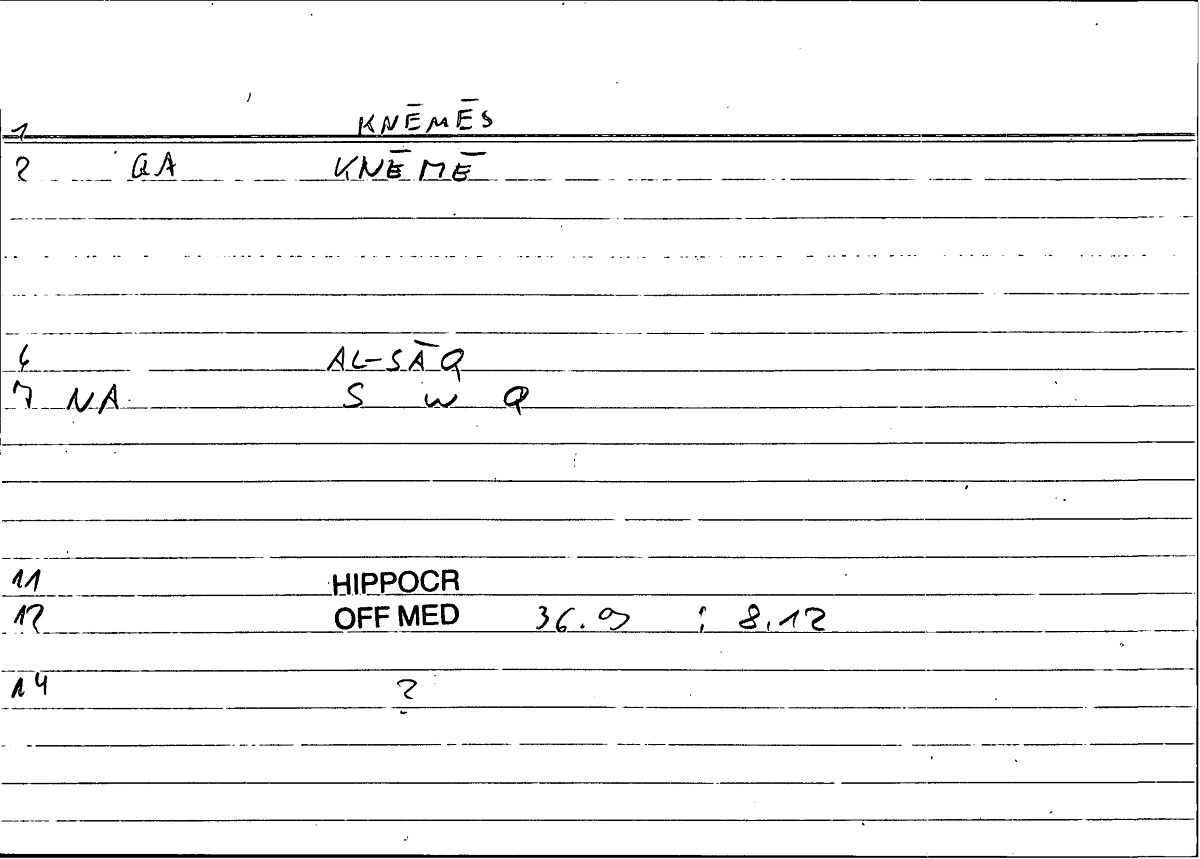 1 KNĒMĒS
2 GA KNĒMĒ
6 AL-SĀQ
7 NA S W Q
11 HIPPOCR
12 OFF MED 36.9 ; 8.12
14 2